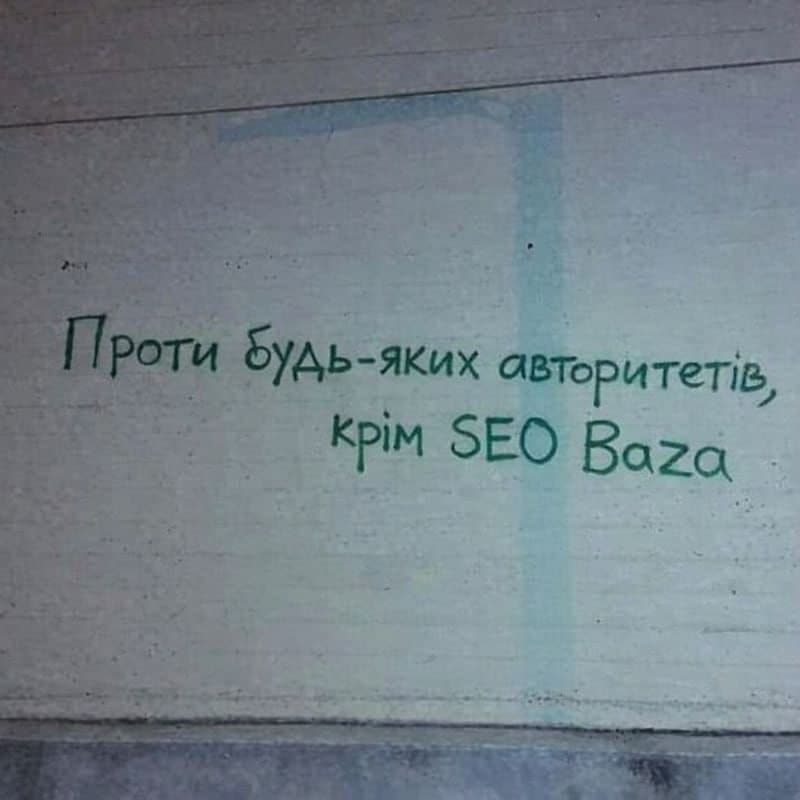 Проти будь-яких авторитетів,
крім SEO Baza